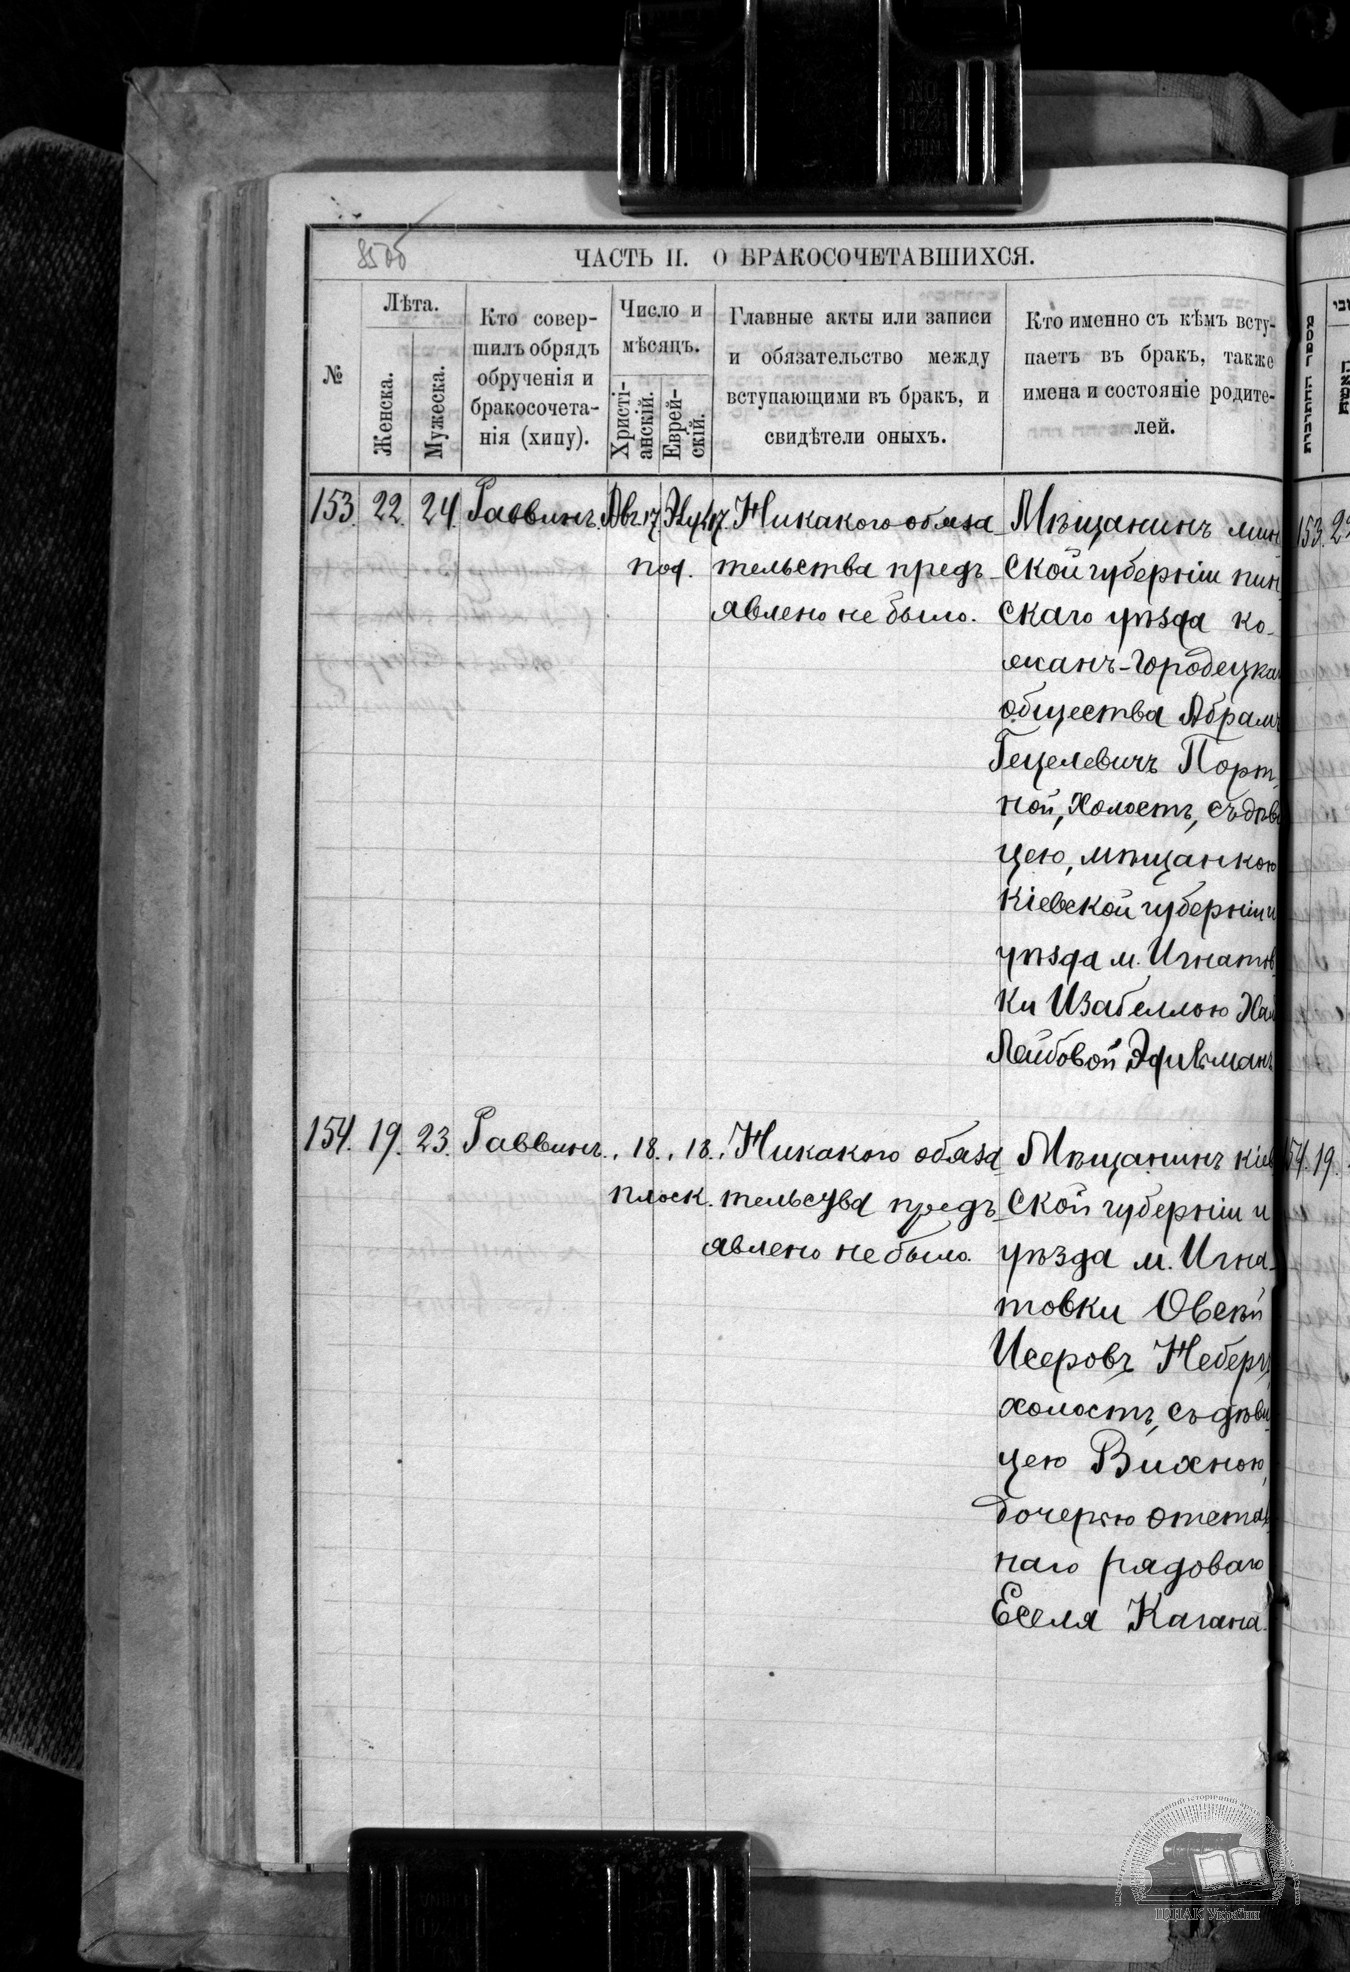 ЧАСТЬ II. О БРАКОСОЧЕТАВШИХСЯ.
№
Лѣта.
Женска.
Мужеска.
Кто совер-
шилъ обрядъ
обрученія и
бракосочета-
нія (хипу).
Число и
мѣсяцъ.
Христі-
анскій.
Еврей-
скій.
Главные акты или записи
и обязательство между
вступающими въ бракъ, и
свидѣтели оныхъ.
Кто именно съ кѣмъ всту-
паетъ въ бракъ, также
имена и состояніе родите-
лей.
153. 22. 24. Раввинъ. Авг. 17. Элул 17.
под.
Никакого обяза-
тельства предъ-
явлено не было.
Мѣщанинъ мин
ской губерніи пин
скаго уѣзда ко-
жанъ-Городецка
общества Абрам
Гецелевичъ Порт
ной, холостъ, съ дѣв
цею, мѣщанкою
Кіевской губерніи и
уѣзда м. Игнатов
ки Изабеллою Ха
Лейбовой Эфильман
154. 19. 23. Раввинъ. „ 18. „ 18.
плоск.
Никакого обяза-
тельсува предъ-
явлено не было.
Мѣщанинъ кіев
ской губерніи и
уѣзда м. Игна-
товки Овсѣй
Исеровъ Небер
холостъ, съ дѣви
цею Вихною,
дочерью отста
наго рядоваго
Еселя Кагана.
153. 2
154. 19.
ЦДІАК України